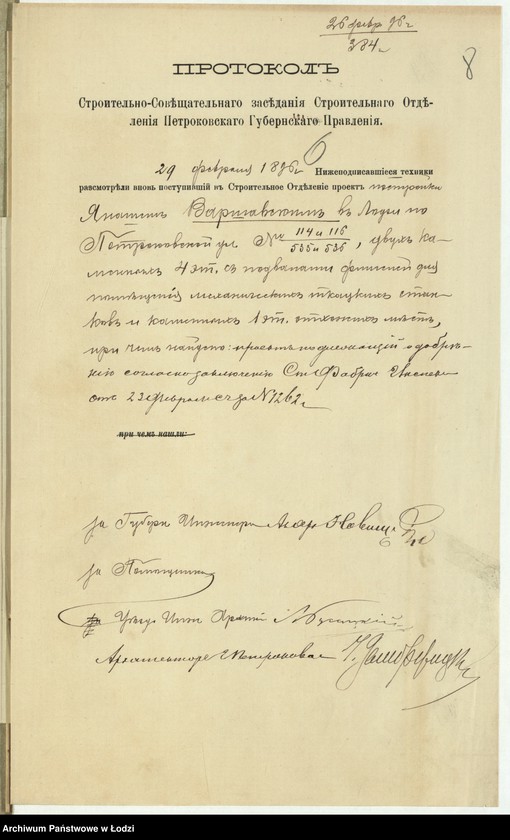 26 февр 96 г
284
8
ПРОТОКОЛЪ
Строительно-Совѣщательнаго засѣданія Строительнаго Отдѣ-
ленія Петроковскаго Губернскаго Правленія.
29 февраля 1896 г. Нижеподписавшіеся техники
разсмотрѣли вновь поступившій въ Строительное Отдѣленіе проектъ постройки
Варшавскимъ въ Лодзи по
Петроковской ул № 114 и 116 / 535 и 536, двухъ ка-
менныхъ 4 эт. съ подвалами для
помѣщенія механическихъ ткацкихъ стан-
ковъ и каменныхъ 1 эт. отхожихъ мѣстъ,
при чемъ найдено: проектъ подлежащій одобре-
нію согласно заключенію Ст. Фабрич
отъ 23 Февраля с г за № 1262
при чемъ нашли:
за Губерн Инженера
за Помощника
Уѣзд Инж
Архитекторъ г Петрокова
Archiwum Państwowe w Łodzi